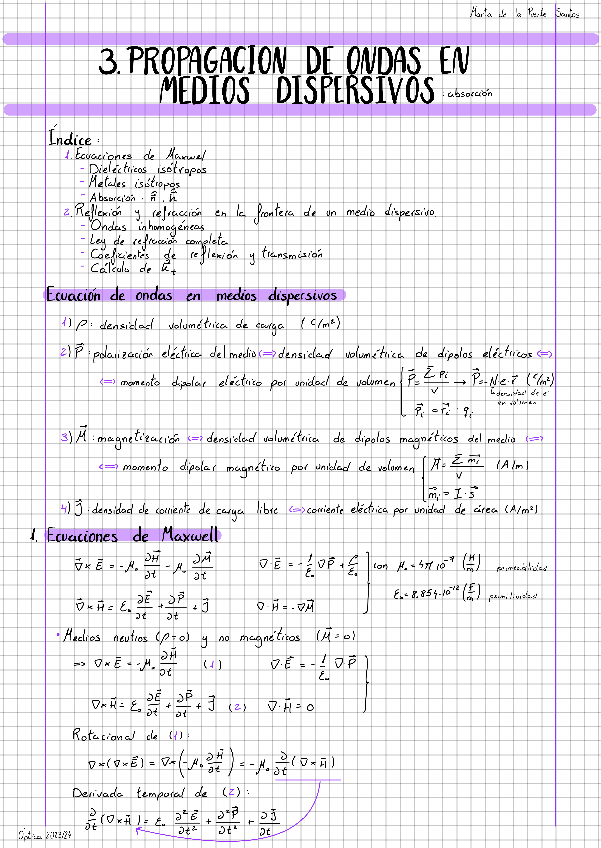 Marta de la Puente Santos
3. PROPAGACION DE ONDAS EN
MEDIOS DISPERSIVOS : absorción
Índice:
1. Ecuaciones de Maxwel
- Dieléctricos isótropos
- Metales isótropos
- Absorción: ñ, k̃
2. Reflexión y refracción en la frontera de un medio dispersivo.
- Ondas inhomogéneas
- Ley de refracción completa
- Coeficientes de reflexión y transmisión
- Cálculo de k̃ₜ
Ecuación de ondas en medios dispersivos
1) ρ: densidad volumétrica de carga (C/m³)
2) P⃗: polarización eléctrica del medio <=> densidad volumétrica de dipolos eléctricos <=>
<=> momento dipolar eléctrico por unidad de volumen { P⃗ = Σ pᵢ / V → P⃗ = -N e·r⃗ (C/m²)
densidad de e⁻ en volumen
p⃗ᵢ = r⃗ᵢ · qᵢ
3) M⃗: magnetización <=> densidad volumétrica de dipolos magnéticos del medio <=>
<=> momento dipolar magnético por unidad de volumen { M⃗ = Σ m⃗ᵢ / V (A/m)
m⃗ᵢ = I · s⃗
4) J⃗: densidad de corriente de carga libre <=> corriente eléctrica por unidad de área (A/m²)
1. Ecuaciones de Maxwell
∇⃗ × E⃗ = -μ₀ ∂H⃗/∂t - μ₀ ∂M⃗/∂t ∇ E⃗ = -1/ε₀ ∇P⃗ + ρ/ε₀ con μ₀ = 4π·10⁻⁷ (H/m) permeabilidad
∇⃗ × H⃗ = ε₀ ∂E⃗/∂t + ∂P⃗/∂t + J⃗ ∇·H⃗ = -∇M⃗ ε₀ = 8.854·10⁻¹² (F/m) permitividad
• Medios neutros (ρ=0) y no magnéticos (M⃗=0)
=> ∇×E⃗ = -μ₀ ∂H⃗/∂t (1) ∇·E⃗ = -1/ε₀ ∇P⃗
∇×H⃗ = ε₀ ∂E⃗/∂t + ∂P⃗/∂t + J⃗ (2) ∇·H⃗ = 0
Rotacional de (1):
∇×(∇×E⃗) = ∇×(-μ₀ ∂H⃗/∂t) = -μ₀ ∂/∂t (∇×H⃗)
Derivada temporal de (2):
∂/∂t (∇×H⃗) = ε₀ ∂²E⃗/∂t² + ∂²P⃗/∂t² + ∂J⃗/∂t
Óptica 2023/24